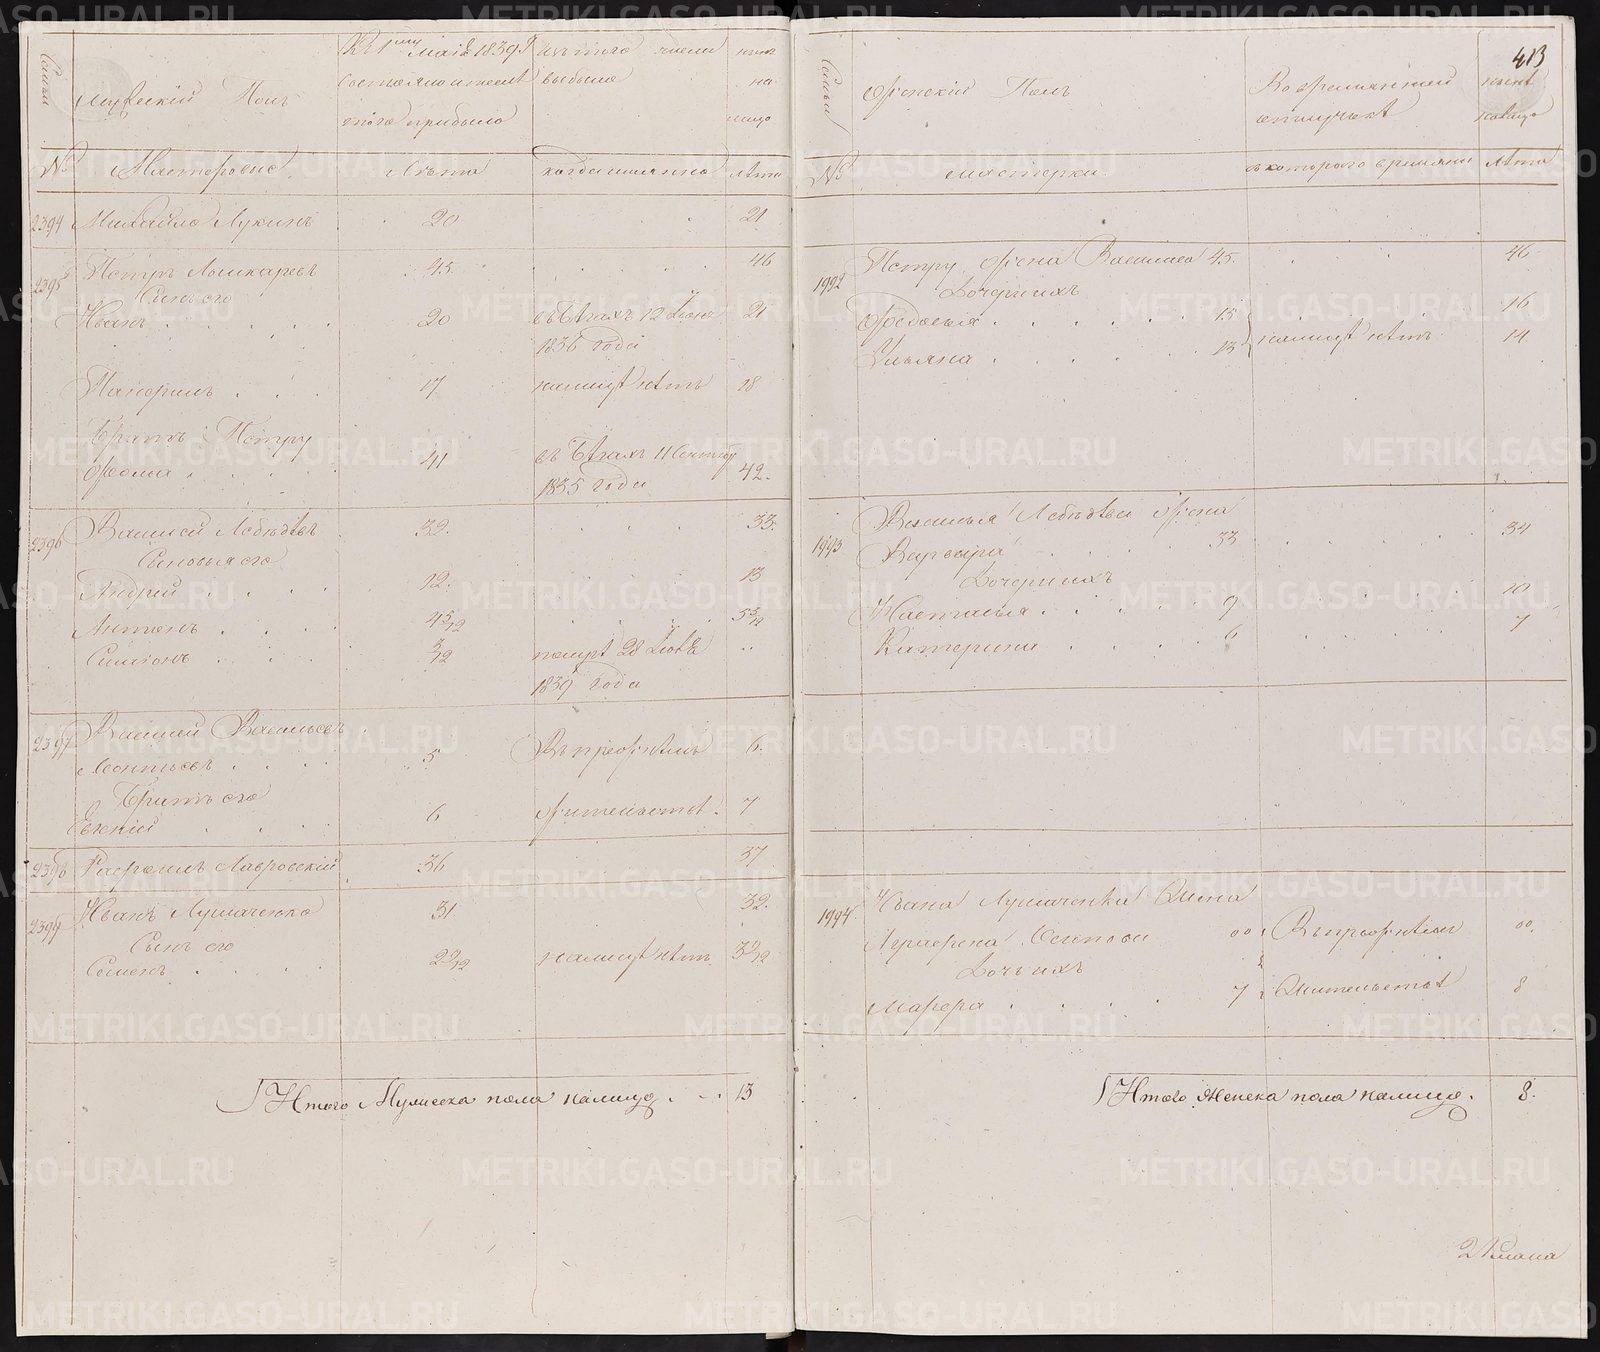 413
Семьи
Мужеский Полъ
К 1му Маія 1839 г
состояло и после
того прибыло
изъ того числа
выбыло
ныне
на
лицо
№
Мастеровые
Лѣта
когда именно
лѣта
2394 Михайло Лукинъ 20 21
2395 Петръ Лошкаревъ 45 46
Сынъ его
Иванъ 20 въ бѣгахъ 12 Июня 21
1836 года
Панфилъ 17 налицѣ нѣтъ 18
Братъ Петру
Фома 41 въ бѣгахъ 11 Сентябр 42
1835 года
2396 Василей Лебѣдевъ 32 33
Сыновья его
Андрей 12 13
Антонъ 4 5/12 5 5/12
Симіонъ 3/12 помрѣ 28 Іюля
1839 года
2397 Василей Васильевъ
Леонтьевъ 5 Въ прежнемъ 6
Братъ его
Евгеній 6 жительстве 7
2398 Рафаилъ Лавровскій 36 37
2399 Иванъ Лушаченко 31 32
Сынъ его
Семенъ 2 9/12 налицѣ нѣтъ 3 9/12
Итого Мужеска пола налицо 13
Семьи
Женскій Полъ
Во временной
отлучке
ныне
налицо
№
мастерки
съ котораго времяни
лѣта
1992 Петру жена Василиса 45 46
Дочери ихъ
Федосья 15 16
Ульяна 13 налицѣ нѣтъ 14
1993 Василья Лебѣдева жена
Варвара 33 34
Дочери ихъ
Настасья 9 10
Катерина 6 7
1994 Ивана Лушаченка жена
Аграфена Осипова 00 Въ прежнемъ 00
Дочь ихъ
Марфа 7 жительстве 8
Итого Женска пола налицо 8